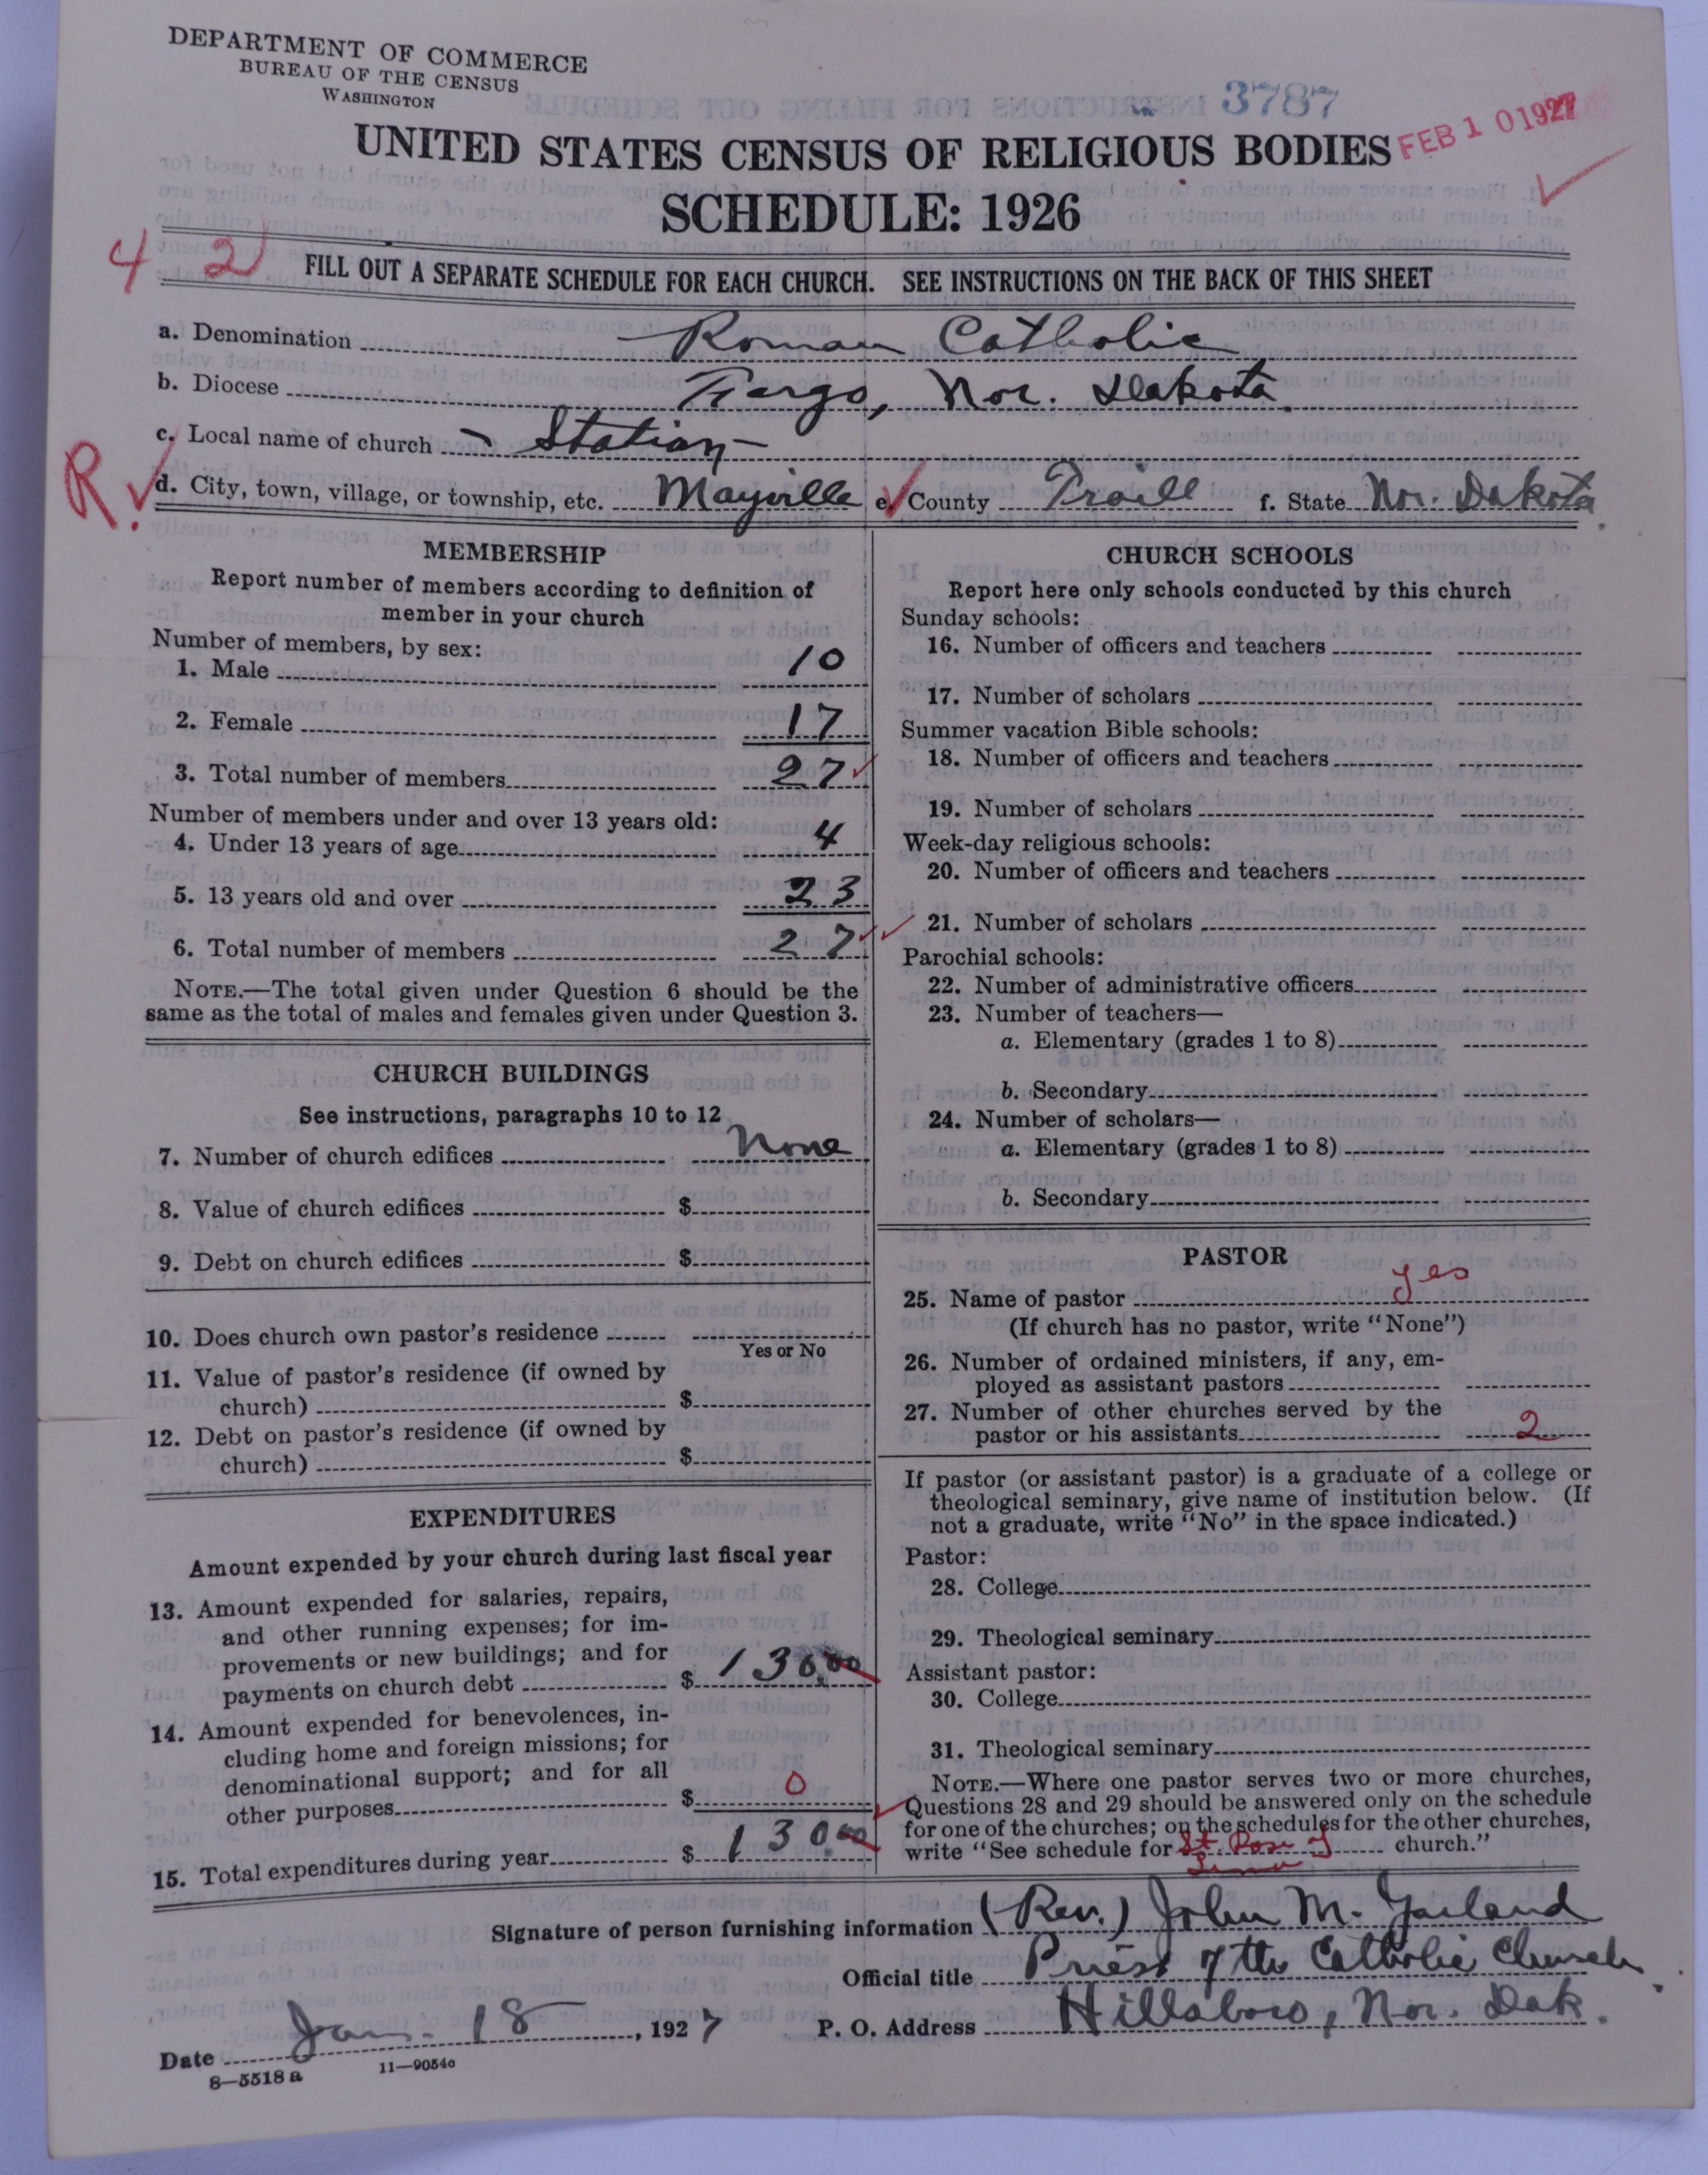 DEPARTMENT OF COMMERCE
BUREAU OF THE CENSUS
WASHINGTON
3787
FEB 10 1927
UNITED STATES CENSUS OF RELIGIOUS BODIES
SCHEDULE: 1926
4 2
FILL OUT A SEPARATE SCHEDULE FOR EACH CHURCH. SEE INSTRUCTIONS ON THE BACK OF THIS SHEET
a. Denomination Roman Catholic
b. Diocese Fargo, Nor. Dakota.
c. Local name of church - Station -
R.
d. City, town, village, or township, etc. Mayville e. County Traill f. State Nor. Dakota.
MEMBERSHIP
Report number of members according to definition of
member in your church
Number of members, by sex:
1. Male 10
2. Female 17
3. Total number of members 27
Number of members under and over 13 years old:
4. Under 13 years of age 4
5. 13 years old and over 23
6. Total number of members 27
NOTE.—The total given under Question 6 should be the
same as the total of males and females given under Question 3.
CHURCH BUILDINGS
See instructions, paragraphs 10 to 12
7. Number of church edifices None
8. Value of church edifices $
9. Debt on church edifices $
10. Does church own pastor's residence
Yes or No
11. Value of pastor's residence (if owned by
church) $
12. Debt on pastor's residence (if owned by
church) $
EXPENDITURES
Amount expended by your church during last fiscal year
13. Amount expended for salaries, repairs,
and other running expenses; for im-
provements or new buildings; and for
payments on church debt $ 130.00
14. Amount expended for benevolences, in-
cluding home and foreign missions; for
denominational support; and for all
other purposes $ 0
15. Total expenditures during year $ 130.00
CHURCH SCHOOLS
Report here only schools conducted by this church
Sunday schools:
16. Number of officers and teachers
17. Number of scholars
Summer vacation Bible schools:
18. Number of officers and teachers
19. Number of scholars
Week-day religious schools:
20. Number of officers and teachers
21. Number of scholars
Parochial schools:
22. Number of administrative officers
23. Number of teachers—
a. Elementary (grades 1 to 8)
b. Secondary
24. Number of scholars—
a. Elementary (grades 1 to 8)
b. Secondary
PASTOR
25. Name of pastor yes
(If church has no pastor, write "None")
26. Number of ordained ministers, if any, em-
ployed as assistant pastors
27. Number of other churches served by the
pastor or his assistants 2
If pastor (or assistant pastor) is a graduate of a college or
theological seminary, give name of institution below. (If
not a graduate, write "No" in the space indicated.)
Pastor:
28. College
29. Theological seminary
Assistant pastor:
30. College
31. Theological seminary
NOTE.—Where one pastor serves two or more churches,
Questions 28 and 29 should be answered only on the schedule
for one of the churches; on the schedules for the other churches,
write "See schedule for St. Rose of church."
Lima
Signature of person furnishing information (Rev.) John M. Garland
Official title Priest of the Catholic Church.
Date Jan. 18, 1927 P. O. Address Hillsboro, Nor. Dak.
8—5518 a 11—9054a